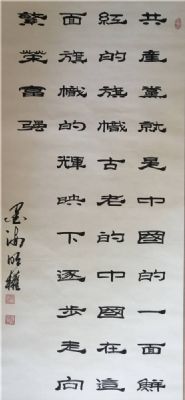 共產黨就是中國的一面鮮
紅的旗幟古老的中國在這
面旗幟的輝映下逐步走向
繁榮富强